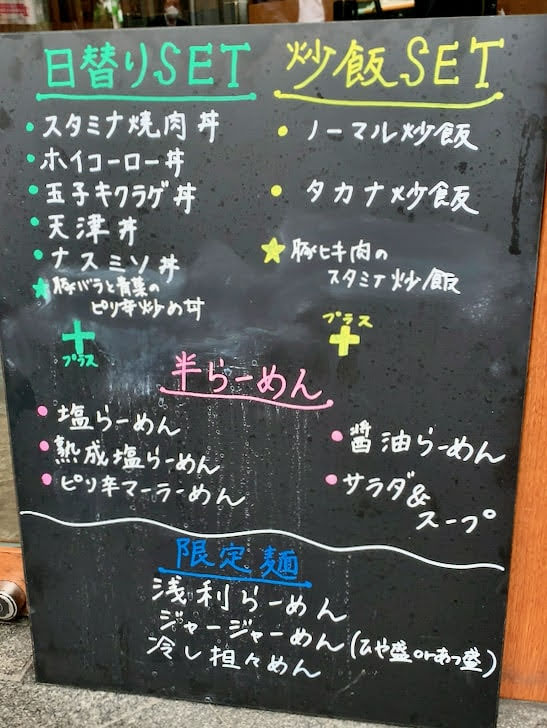 日替りSET
・スタミナ焼肉丼
・ホイコーロー丼
・玉子キクラゲ丼
・天津丼
・ナスミソ丼
★豚バラと青菜の
ピリ辛炒め丼
+
プラス
炒飯SET
・ノーマル炒飯
・タカナ炒飯
★豚ヒキ肉の
スタミナ炒飯
プラス
+
半らーめん
・塩らーめん
・熟成塩らーめん
・ピリ辛マーラーめん
・醤油らーめん
・サラダ&
スープ
限定麺
浅利らーめん
ジャージャーめん(ひや盛orあつ盛)
冷し担々めん